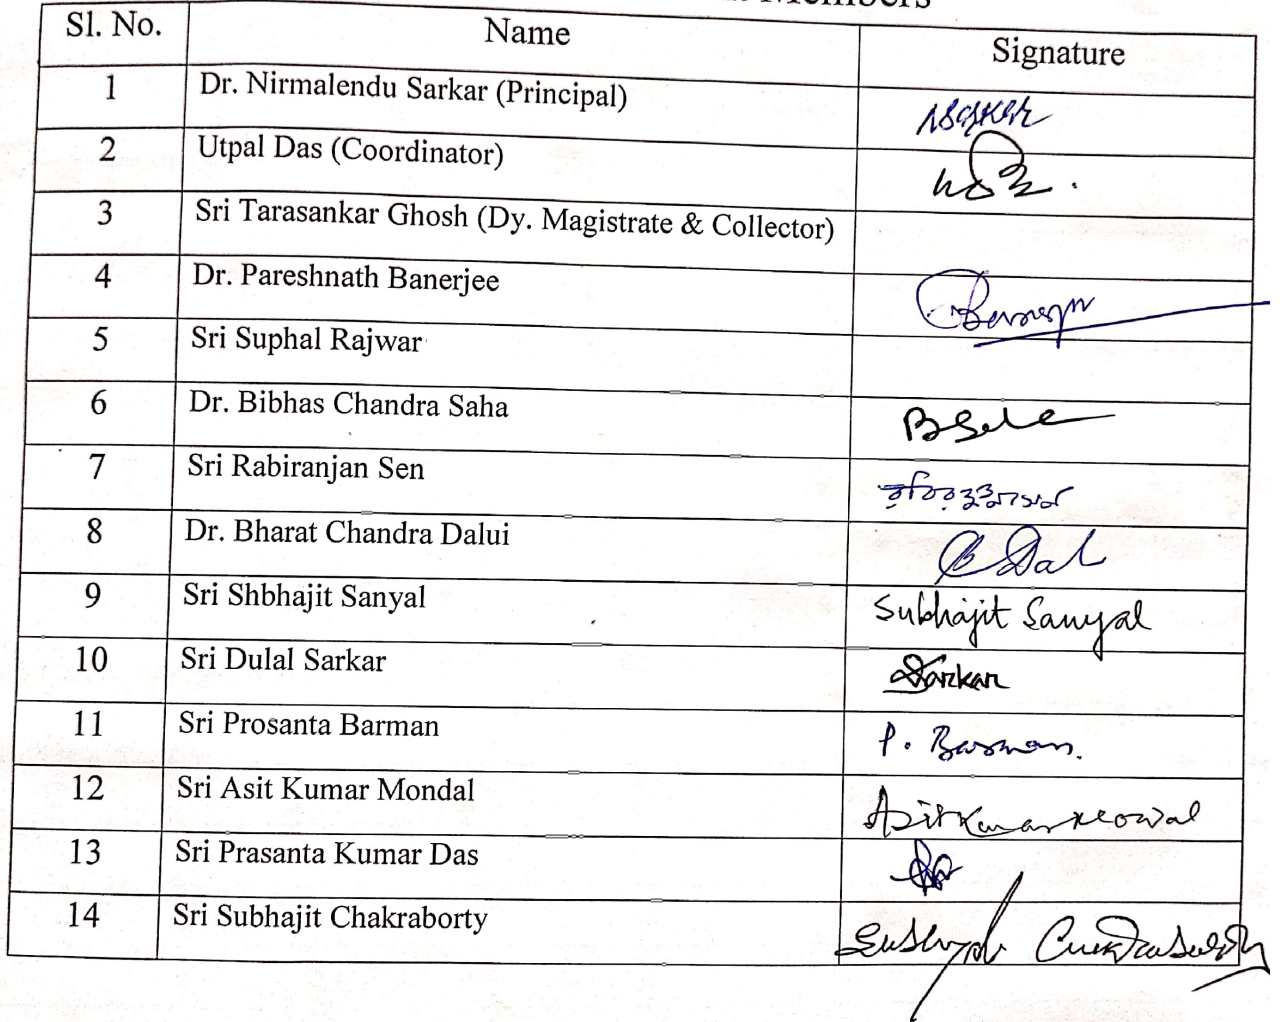 Members
Sl. No. Name Signature
1 Dr. Nirmalendu Sarkar (Principal) NSarkar
2 Utpal Das (Coordinator)
3 Sri Tarasankar Ghosh (Dy. Magistrate & Collector)
4 Dr. Pareshnath Banerjee
5 Sri Suphal Rajwar
6 Dr. Bibhas Chandra Saha
7 Sri Rabiranjan Sen
8 Dr. Bharat Chandra Dalui
9 Sri Shbhajit Sanyal Subhajit Sanyal
10 Sri Dulal Sarkar DSarkar
11 Sri Prosanta Barman P. Barman.
12 Sri Asit Kumar Mondal Asit Kumar Mondal
13 Sri Prasanta Kumar Das
14 Sri Subhajit Chakraborty